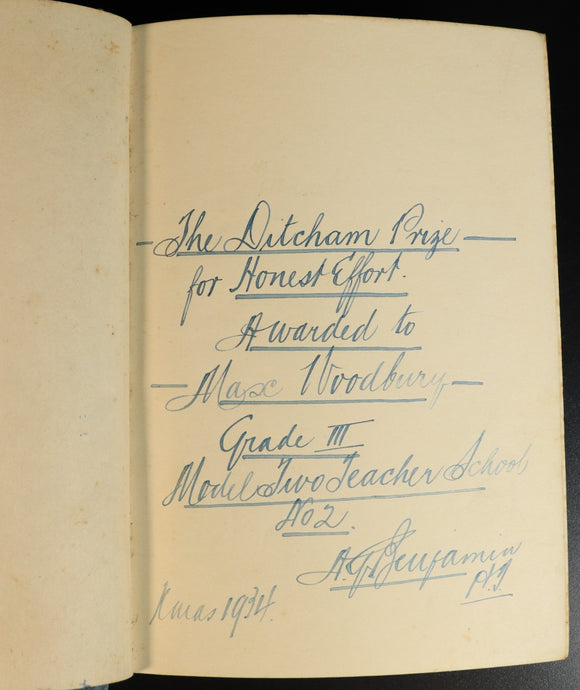 — The Ditcham Prize —
for Honest Effort.
Awarded to
— Max Woodbury —
Grade III
Model Two Teacher School
No 2.
Benjamin
Xmas 1934.